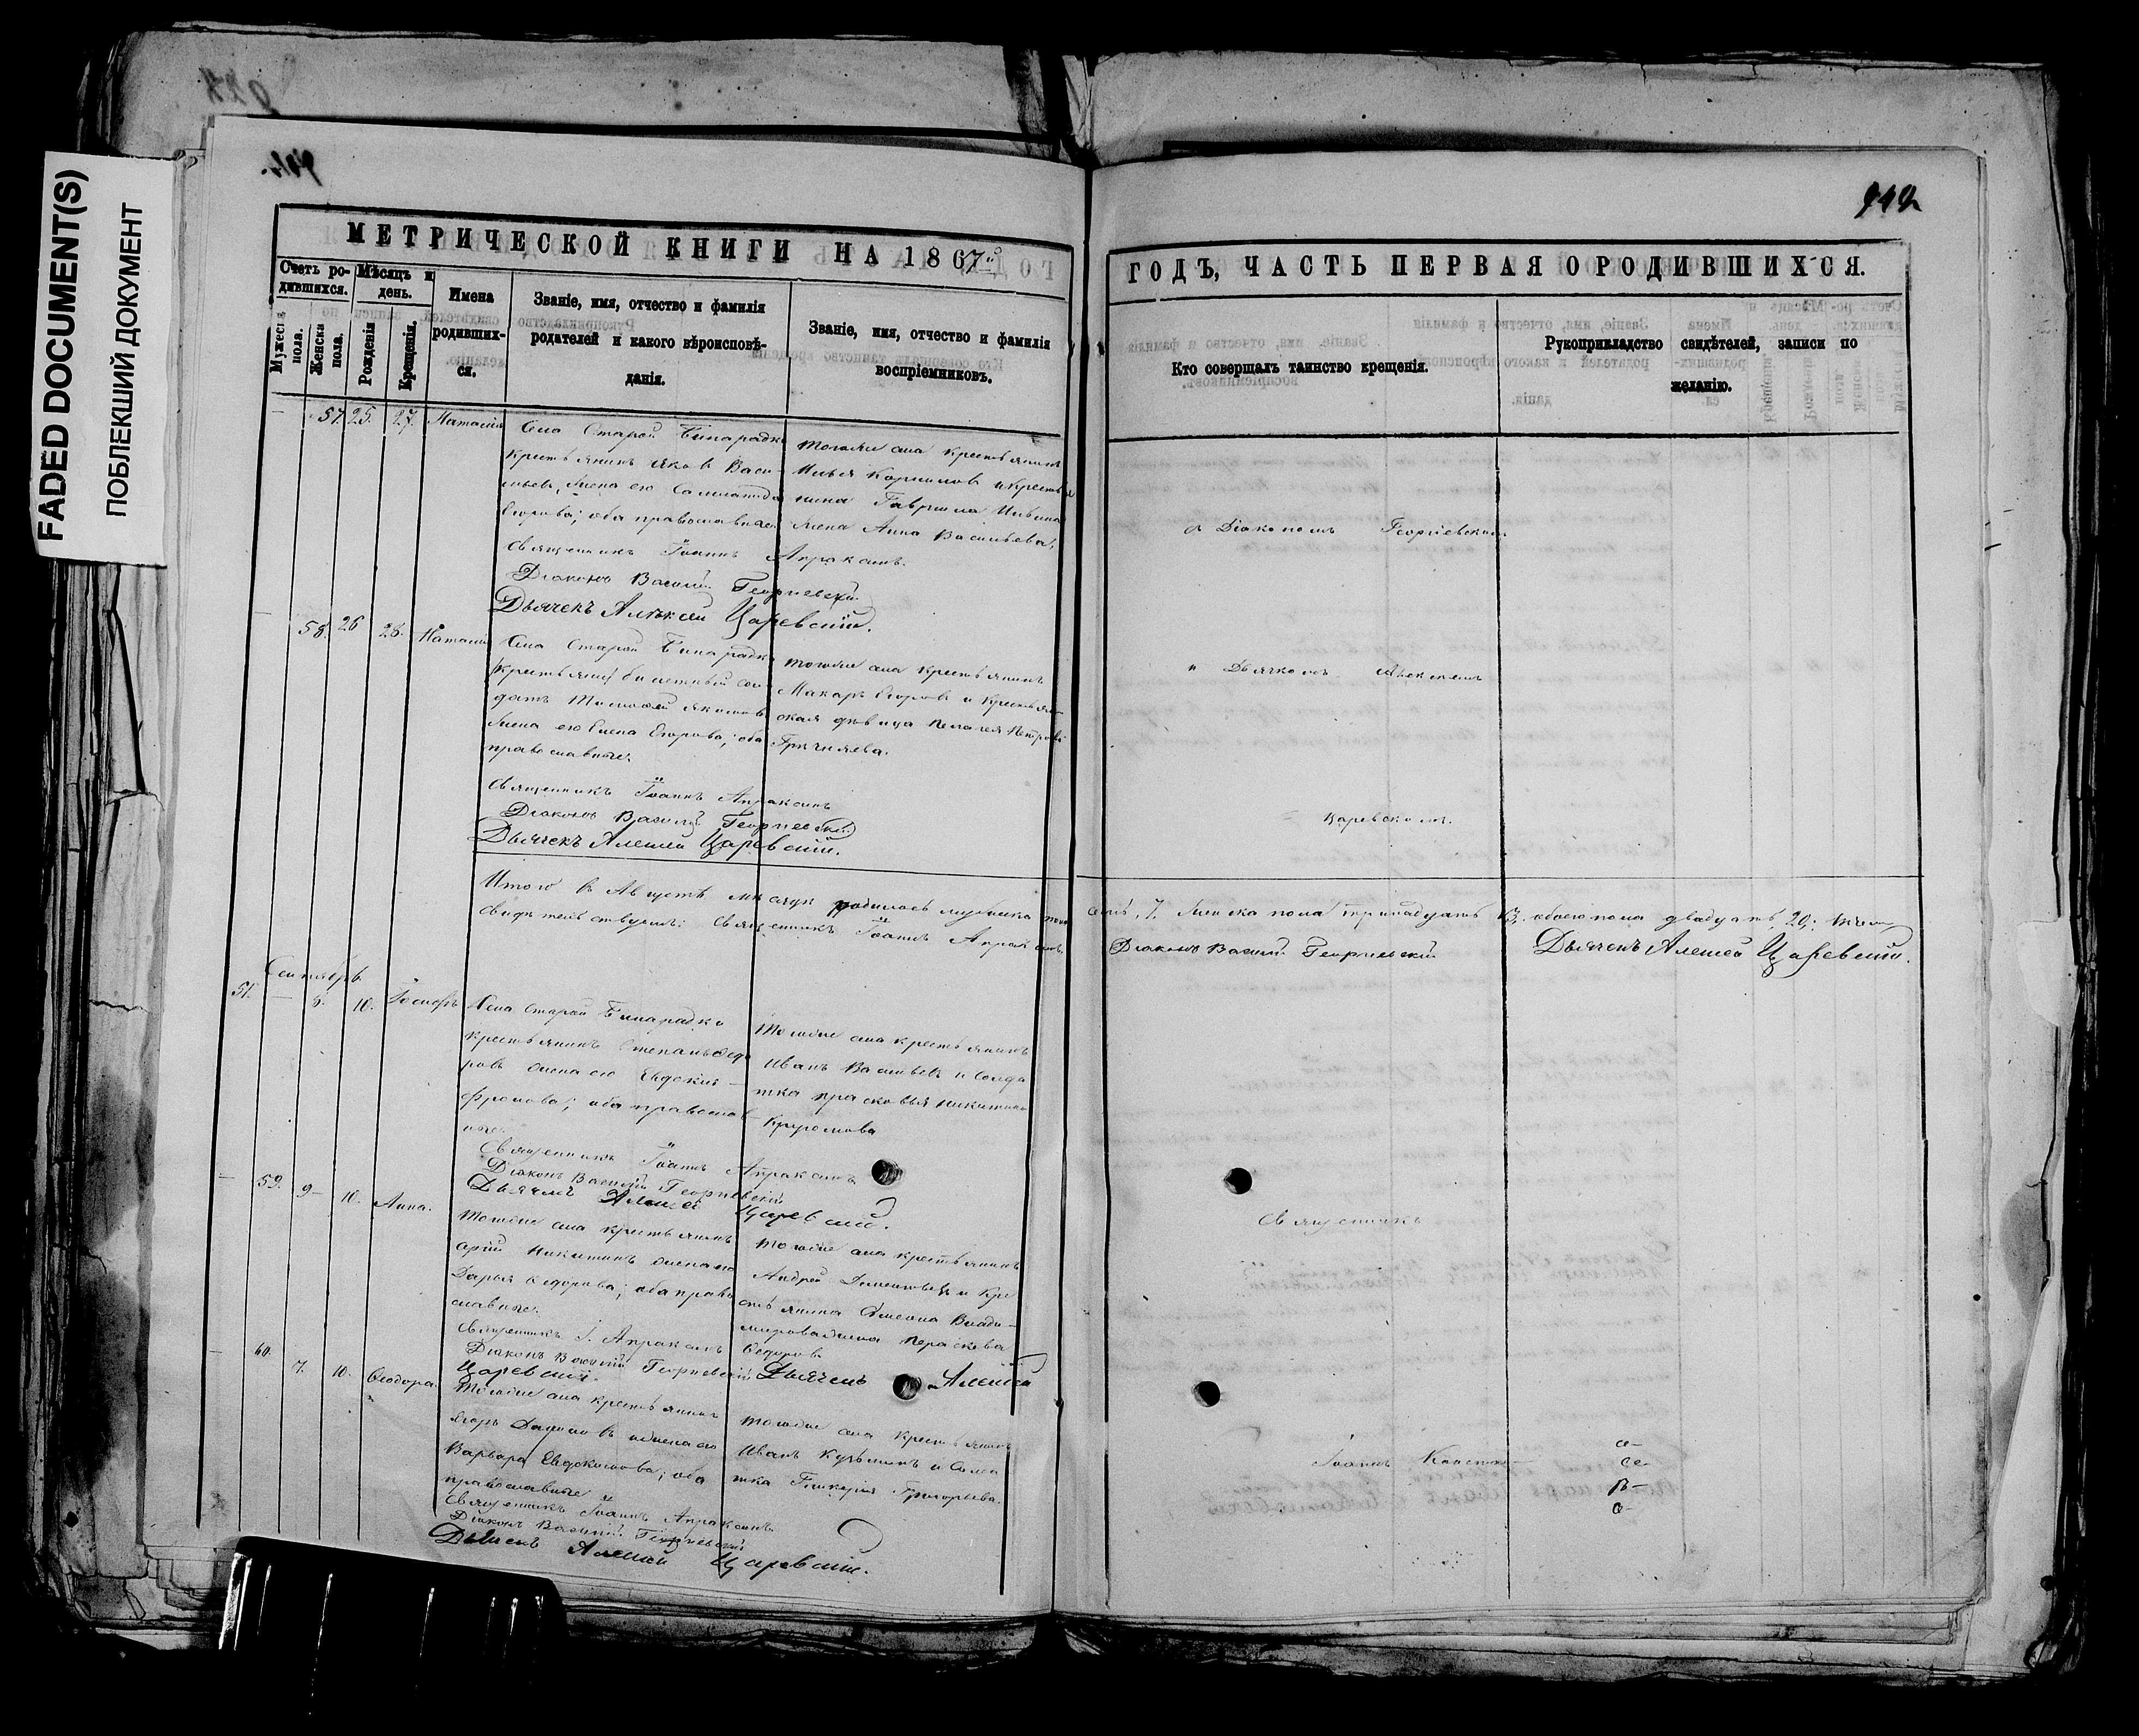 FADED DOCUMENT(S)
ПОБЛЕКШИЙ ДОКУМЕНТ
МЕТРИЧЕСКОЙ КНИГИ НА 1867й
Счетъ ро-
дившихся.
Мѣсяцъ и
день.
Мужеска
пола.
Женска
пола.
Рожденія
Крещенія.
Имена
родивших-
ся.
Званіе, имя, отчество и фамилія
родителей и какого вѣроисповѣ-
данія.
Званіе, имя, отчество и фамилія
воспріемниковъ.
— 57. 25. 27. Наталія
Села Старой Бинарадки
крестьянинъ Яковъ Васи-
льевъ, жена его
Егорова; оба православные.
Тогоже села крестьянинъ
Илья Корниловъ и крестья
нина Гавриила Ильина
жена Анна Васильева.
Священникъ Іоаннъ Апраксинъ.
Діаконъ Василій Георгіевскій
Дьячекъ Алексѣй Царевскій.
— 58. 26 28. Наталія
Села Старой Бинарадки
билетный сол-
датъ Тимофей Якимовъ
жена его Елена Егорова; оба
православные.
тогоже села крестьянинъ
Макаръ Егоровъ и крестьян-
ская дѣвица Пелагея Петрова
Священникъ Іоаннъ Апраксинъ
Діаконъ Василій Георгіевскій.
Дьячекъ Алексѣй Царевскій.
Итого въ Августѣ мѣсяцѣ родилось мужеска пола
свидѣтельствуемъ: Священникъ Іоаннъ Апраксинъ.
Сентябрь
51. — 8. 10. Іосифъ
Села Старой Бинарадки
крестьянинъ Степанъ Ѳедо
ровъ жена его Евдокія
Фролова; оба православ-
ные.
Тогоже села крестьянинъ
Иванъ Васильевъ и солда
тка Прасковья Никитина
Священникъ Іоаннъ Апраксинъ
Діаконъ Василій Георгіевскій
Дьячекъ Алексѣй Царевскій.
— 59. 9 — 10. Анна.
Тогоже села крестьянинъ
Никитинъ жена его
Дарья Ѳедорова; оба право
славные.
Тогоже села крестьянинъ
Андрей Дементьевъ и кре
стьянина Симеона Влади-
мирова жена Параскева
Ѳедорова
Священникъ І. Апраксинъ
Діаконъ Василій Георгіевскій Дьячекъ Алексѣй
Царевскій.
— 60. 7. 10. Ѳеодора.
Тогоже села крестьянинъ
Егоръ Даниловъ и жена его
Варвара Евдокимова; оба
православные
Тогоже села крестьянинъ
Иванъ Кузьминъ и солда
тка Гликерія Григорьева.
Священникъ Іоаннъ Апраксинъ
Діаконъ Василій Георгіевскій
Дьячекъ Алексѣй Царевскій.
ГОДЪ, ЧАСТЬ ПЕРВАЯ О РОДИВШИХСЯ.
Кто совершалъ таинство крещенія.
Рукоприкладство свидѣтелей, записи по
желанію.
съ Діакономъ Георгіевскимъ
и Дьячкомъ Алексѣемъ
Царевскимъ.
семь, 7. женска пола тринадцать 13. обоего пола двадцать, 20;
Діаконъ Василій Георгіевскій
Дьячекъ Алексѣй Царевскій.
Священникъ
Іоаннъ